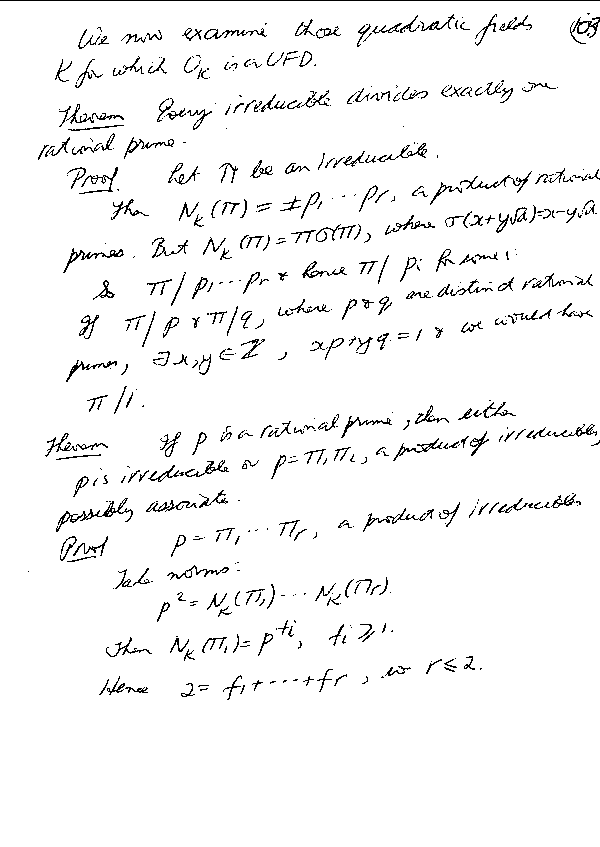 We now examine those quadratic fields (103)
K for which O_K is a UFD.
Theorem Every irreducible divides exactly one
rational prime.
Proof. Let π be an irreducible.
Then N_K(π) = ±p_1 ⋯ p_r, a product of rational
primes. But N_K(π) = πσ(π), where σ(x+y√d)=x−y√d.
So π | p_1 ⋯ p_r & hence π | p_i for some i.
If π | p & π | q, where p & q are distinct rational
primes, ∃ x, y ∈ ℤ, xp+yq = 1 & we would have
π | 1.
Theorem If p is a rational prime, then either
p is irreducible or p = π_1π_2, a product of irreducibles,
possibly associate.
Proof p = π_1 ⋯ π_r, a product of irreducibles
Take norms:
p^2 = N_K(π_1) ⋯ N_K(π_r).
Then N_K(π_i) = p^{f_i}, f_i ⩾ 1.
Hence 2 = f_1 + ⋯ + f_r, so r ⩽ 2.